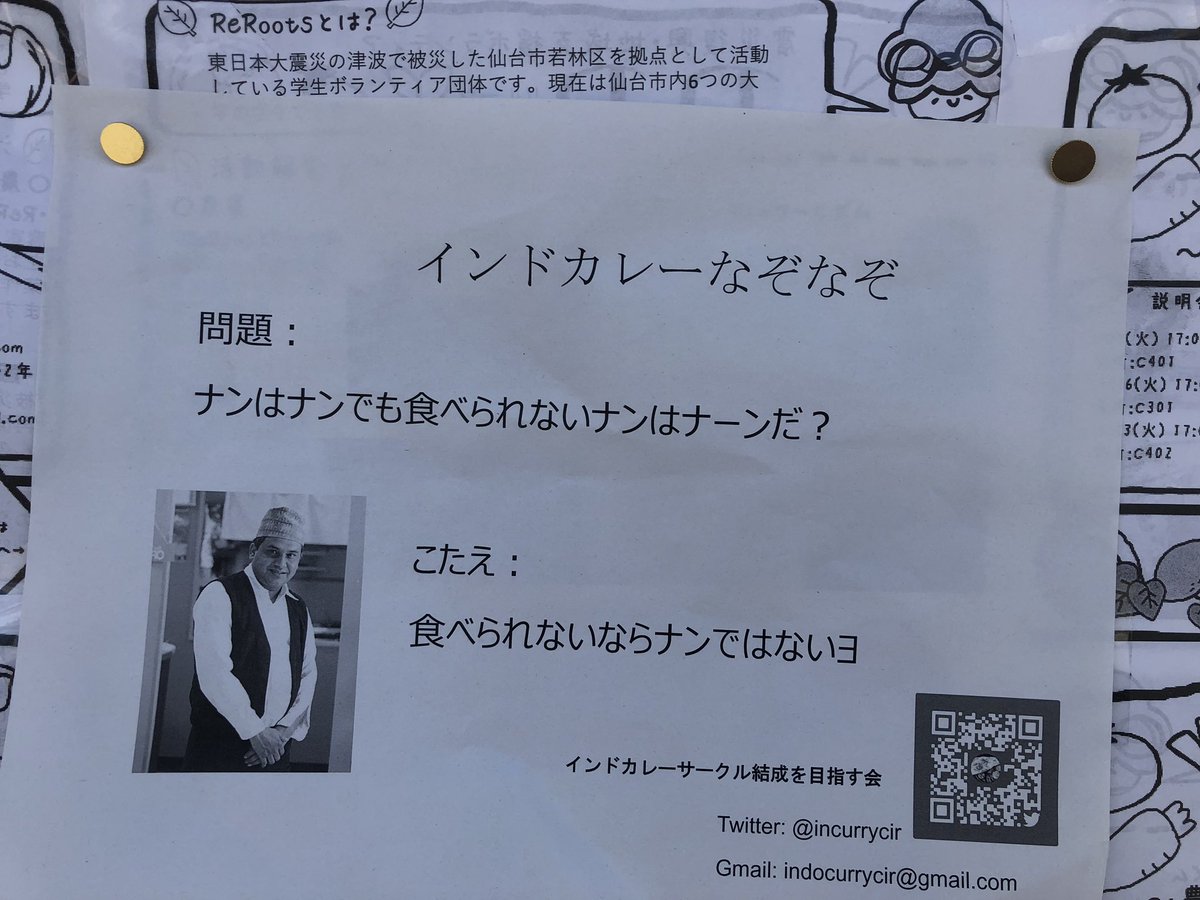 ReRootsとは?
東日本大震災の津波で被災した仙台市若林区を拠点として活動
している学生ボランティア団体です。現在は仙台市内6つの大
インドカレーなぞなぞ
問題：
ナンはナンでも食べられないナンはナーンだ？
こたえ：
食べられないならナンではないヨ
インドカレーサークル結成を目指す会
Twitter: @incurrycir
Gmail: indocurrycir@gmail.com
説明
(火) 17:0
:C401
6(火) 17:
:C301
3(火) 17:
:C402
om
2年
.com